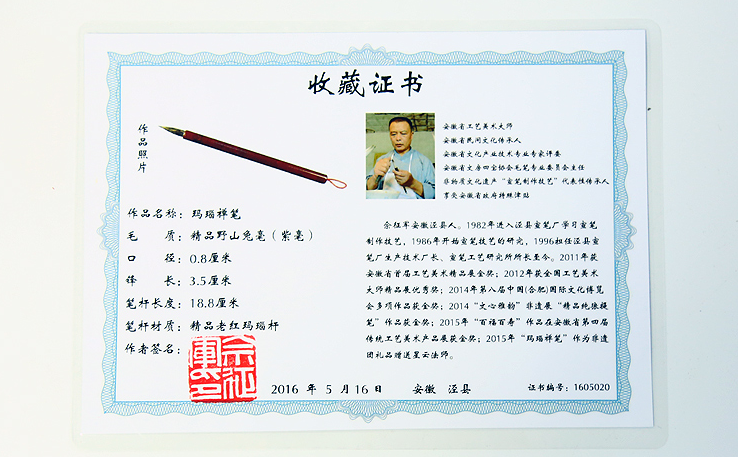 收藏证书
作品照片
安徽省工艺美术大师
安徽省民间文化传承人
安徽省文化产业技术专业专家评委
安徽省文房四宝协会毛笔专业委员会主任
非物质文化遗产“宣笔制作技艺”代表性传承人
享受安徽省政府特殊津贴
作品名称：玛瑙禅笔
毛 质：精品野山兔毫（紫毫）
口 径：0.8厘米
锋 长：3.5厘米
笔杆长度：18.8厘米
笔杆材质：精品老红玛瑙杆
作者签名：
佘征军安徽泾县人。1982年进入泾县宣笔厂学习宣笔
制作技艺，1986年开始宣笔技艺的研究，1996担任泾县宣
笔厂生产技术厂长、宣笔工艺研究所所长至今。2011年获
安徽省首届工艺美术精品展金奖；2012年获全国工艺美术
大师精品展优秀奖；2014年第八届中国(合肥)国际文化博览
会多项作品获金奖；2014“文心雅韵”非遗展“精品纯狼提
笔”作品获金奖；2015年“百福百寿”作品在安徽省第四届
传统工艺美术产品展获金奖；2015年“玛瑙禅笔”作为非遗
团礼品赠送星云法师。
佘征军印
2016 年 5 月 16 日 安徽 泾县 证书编号：1605020